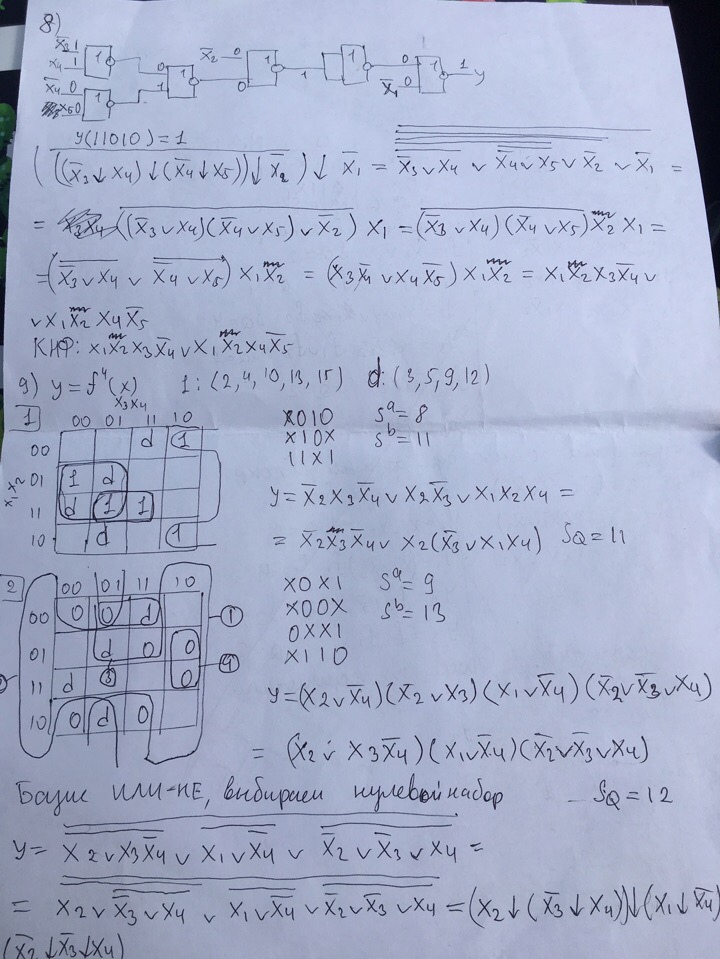 8)
x̄3 1
x4 1
x̄4 0
x5 0
1 1 0 1 1 x̄2 0 0 1 1 1 0 x̄1 0 1 1 y
y(11010) = 1
(((x̄3↓x4)↓(x̄4↓x5))↓x̄2)↓x̄1 = x̄3∨x4 ∨ x̄4∨x5 ∨ x̄2 ∨ x̄1 =
= ((x̄3∨x4)(x̄4∨x5)∨x̄2) x1 = (x̄3∨x4)(x̄4∨x5) x2 x1 =
= (x̄3∨x4 ∨ x̄4∨x5) x1x2 = (x3x̄4 ∨ x4x̄5) x1x2 = x1x2x3x̄4 ∨
∨ x1x2x4x̄5
КНФ: x1x2x3x̄4 ∨ x1x2x4x̄5
9) y = f⁴(x) 1: (2,4,10,13,15) d: (3,5,9,12)
1
x3x4
00 01 11 10
x1x2
00 d 1
01 1 d
11 d 1 1
10 d 1
x010 Sᵃ = 8
x10x Sᵇ = 11
11x1
y = x̄2x3x̄4 ∨ x2x̄3 ∨ x1x2x4 =
= x̄2x3x̄4 ∨ x2(x̄3∨x1x4) SQ = 11
2
00 01 11 10
00 0 0 d 1
01 d 0 0
11 d 3 0 4
10 0 d 0
x0x1 Sᵃ = 9
x00x Sᵇ = 13
0xx1
x110
y = (x2∨x̄4)(x2∨x3)(x1∨x̄4)(x̄2∨x̄3∨x4)
= (x2∨x3x̄4)(x1∨x̄4)(x̄2∨x̄3∨x4)
Базис ИЛИ-НЕ, выбираем нулевой набор SQ = 12
y = x2∨x3x̄4 ∨ x1∨x̄4 ∨ x̄2∨x̄3∨x4 =
= x2∨x̄3∨x4 ∨ x1∨x̄4 ∨ x̄2∨x̄3∨x4 = (x2↓(x̄3↓x4))↓(x1↓x̄4)
(x̄2↓x̄3↓x4)